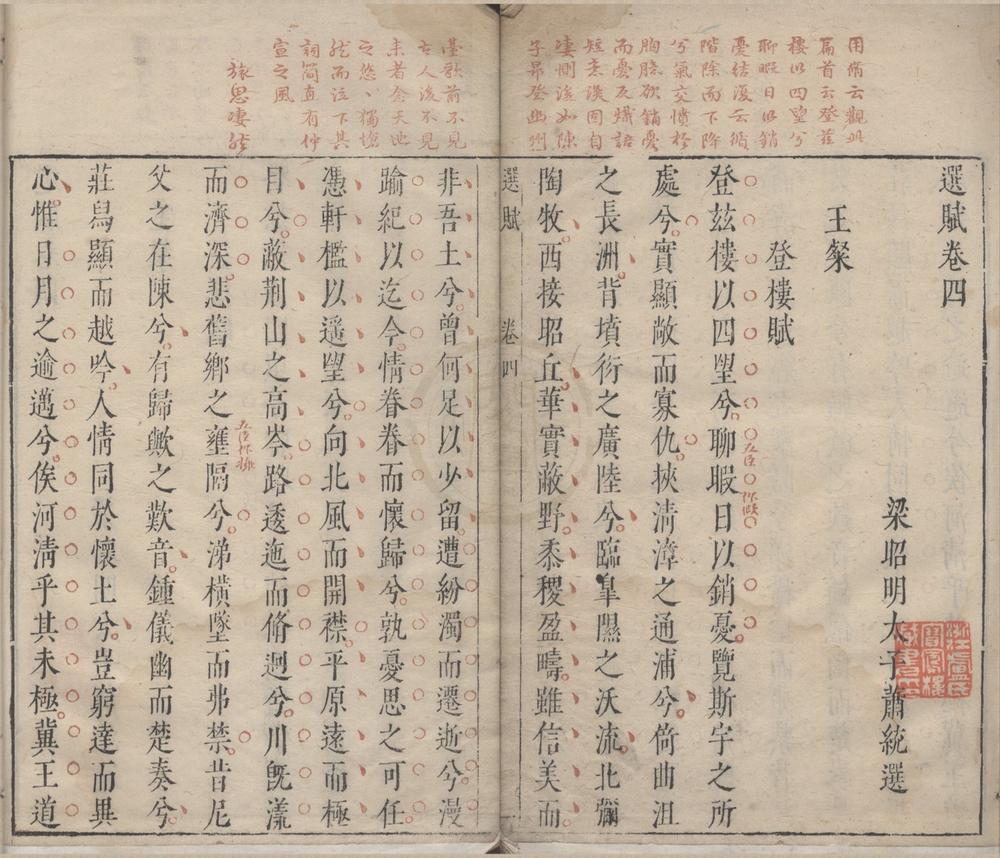 用脩云觀此
篇首云登茲
樓以四望兮
聊暇日以銷
憂結復云循
階除而下降
兮氣交憤於
胸臆欲銷憂
而憂反熾語
短意淡固自
悽惻後如陳
子昻登幽州
臺歌前不見
古人後不見
來者念天地
之悠〻獨愴
然而泣下其
詞簡直有仲
宣之風
旅思淒然
選賦卷四
梁昭明太子蕭統選
王粲
登樓賦
登茲樓以四望兮聊暇日以銷憂覽斯宇之所
五臣作假
處兮實顯敞而寡仇挾清漳之通浦兮倚曲沮
之長洲背墳衍之廣陸兮臨臯隰之沃流北彌
陶牧西接昭丘華實蔽野黍稷盈疇雖信美而
選賦 卷四 一
非吾土兮曾何足以少留遭紛濁而遷逝兮漫
踰紀以迄今情眷眷而懷歸兮孰憂思之可任
憑軒檻以遥望兮向北風而開襟平原遠而極
目兮蔽荆山之高岑路逶迤而脩迥兮川旣漾
而濟深悲舊鄉之壅隔兮涕橫墜而弗禁昔尼
五臣作擁
父之在陳兮有歸歟之歎音鍾儀幽而楚奏兮
莊舃顯而越吟人情同於懷土兮豈窮達而異
心惟日月之逾邁兮俟河清乎其未極冀王道